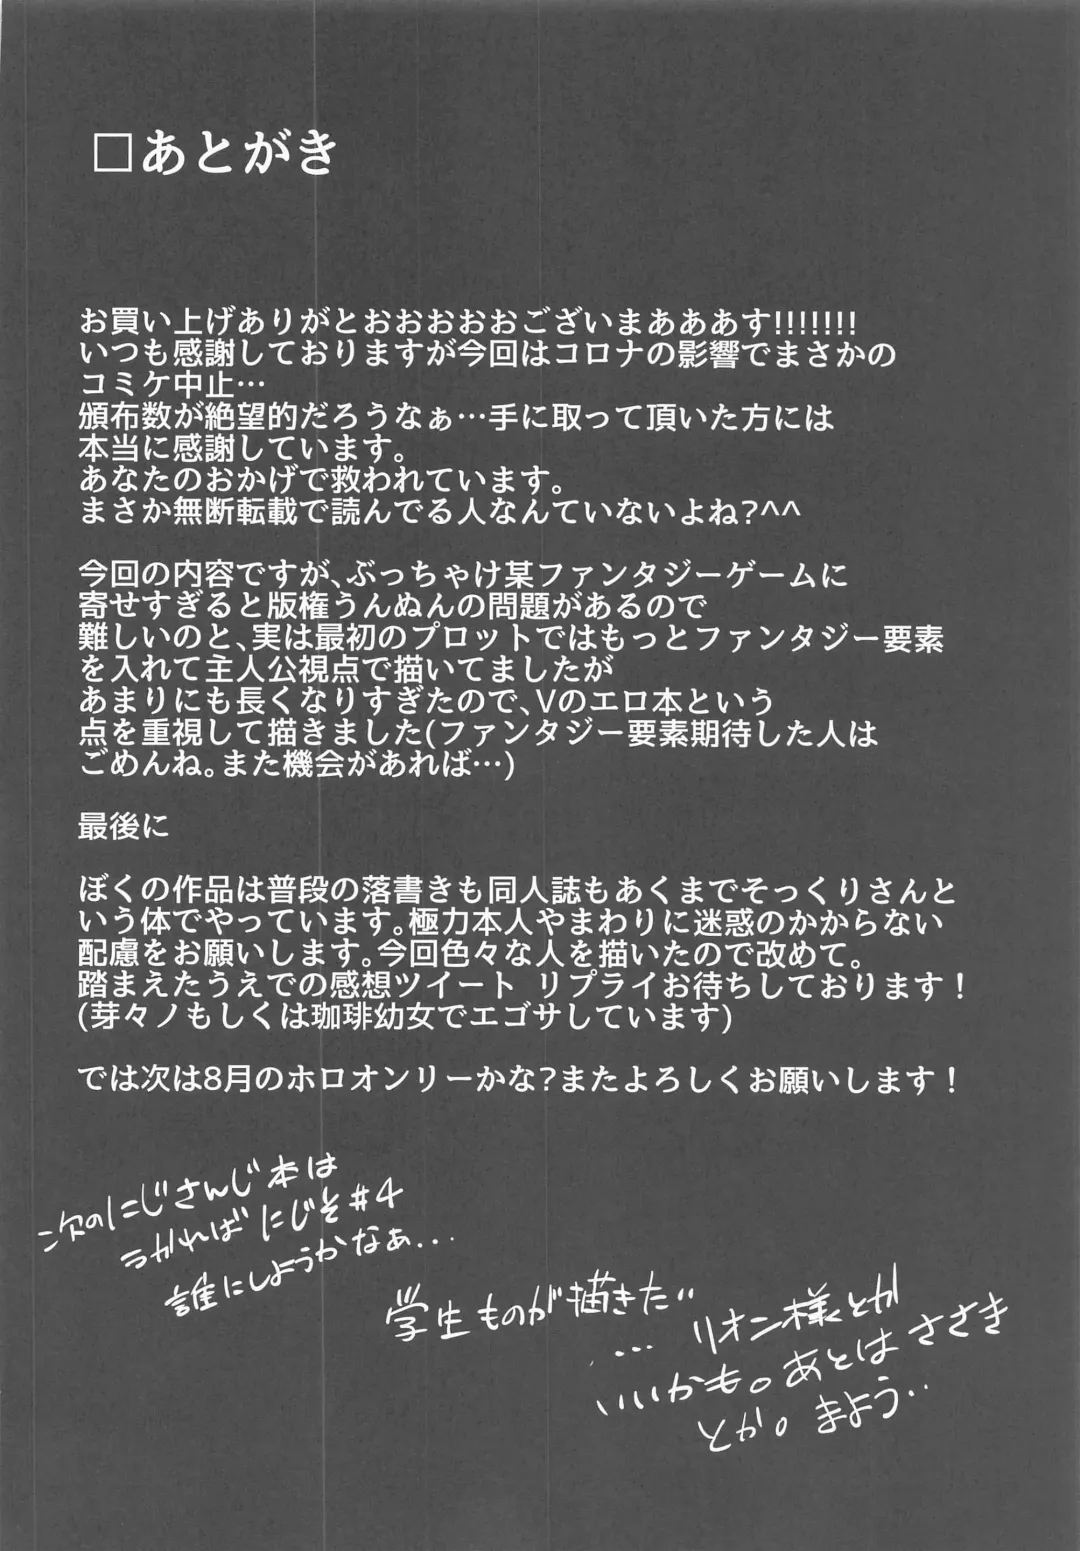 □あとがき
お買い上げありがとおおおおおございまあああす!!!!!!!
いつも感謝しておりますが今回はコロナの影響でまさかの
コミケ中止…
頒布数が絶望的だろうなぁ…手に取って頂いた方には
本当に感謝しています。
あなたのおかげで救われています。
まさか無断転載で読んでる人なんていないよね?^^
今回の内容ですが、ぶっちゃけ某ファンタジーゲームに
寄せすぎると版権うんぬんの問題があるので
難しいのと、実は最初のプロットではもっとファンタジー要素
を入れて主人公視点で描いてましたが
あまりにも長くなりすぎたので、Vのエロ本という
点を重視して描きました(ファンタジー要素期待した人は
ごめんね。また機会があれば…)
最後に
ぼくの作品は普段の落書きも同人誌もあくまでそっくりさんと
いう体でやっています。極力本人やまわりに迷惑のかからない
配慮をお願いします。今回色々な人を描いたので改めて。
踏まえたうえでの感想ツイート リプライお待ちしております！
(芽々ノもしくは珈琲幼女でエゴサしています)
では次は8月のホロオンリーかな?またよろしくお願いします！
次のにじさんじ本は
うかればにじそ#4
誰にしようかなぁ...
学生ものが描きたい
... リオン様とか
いいかも。あとは ささき
とか。まよう..